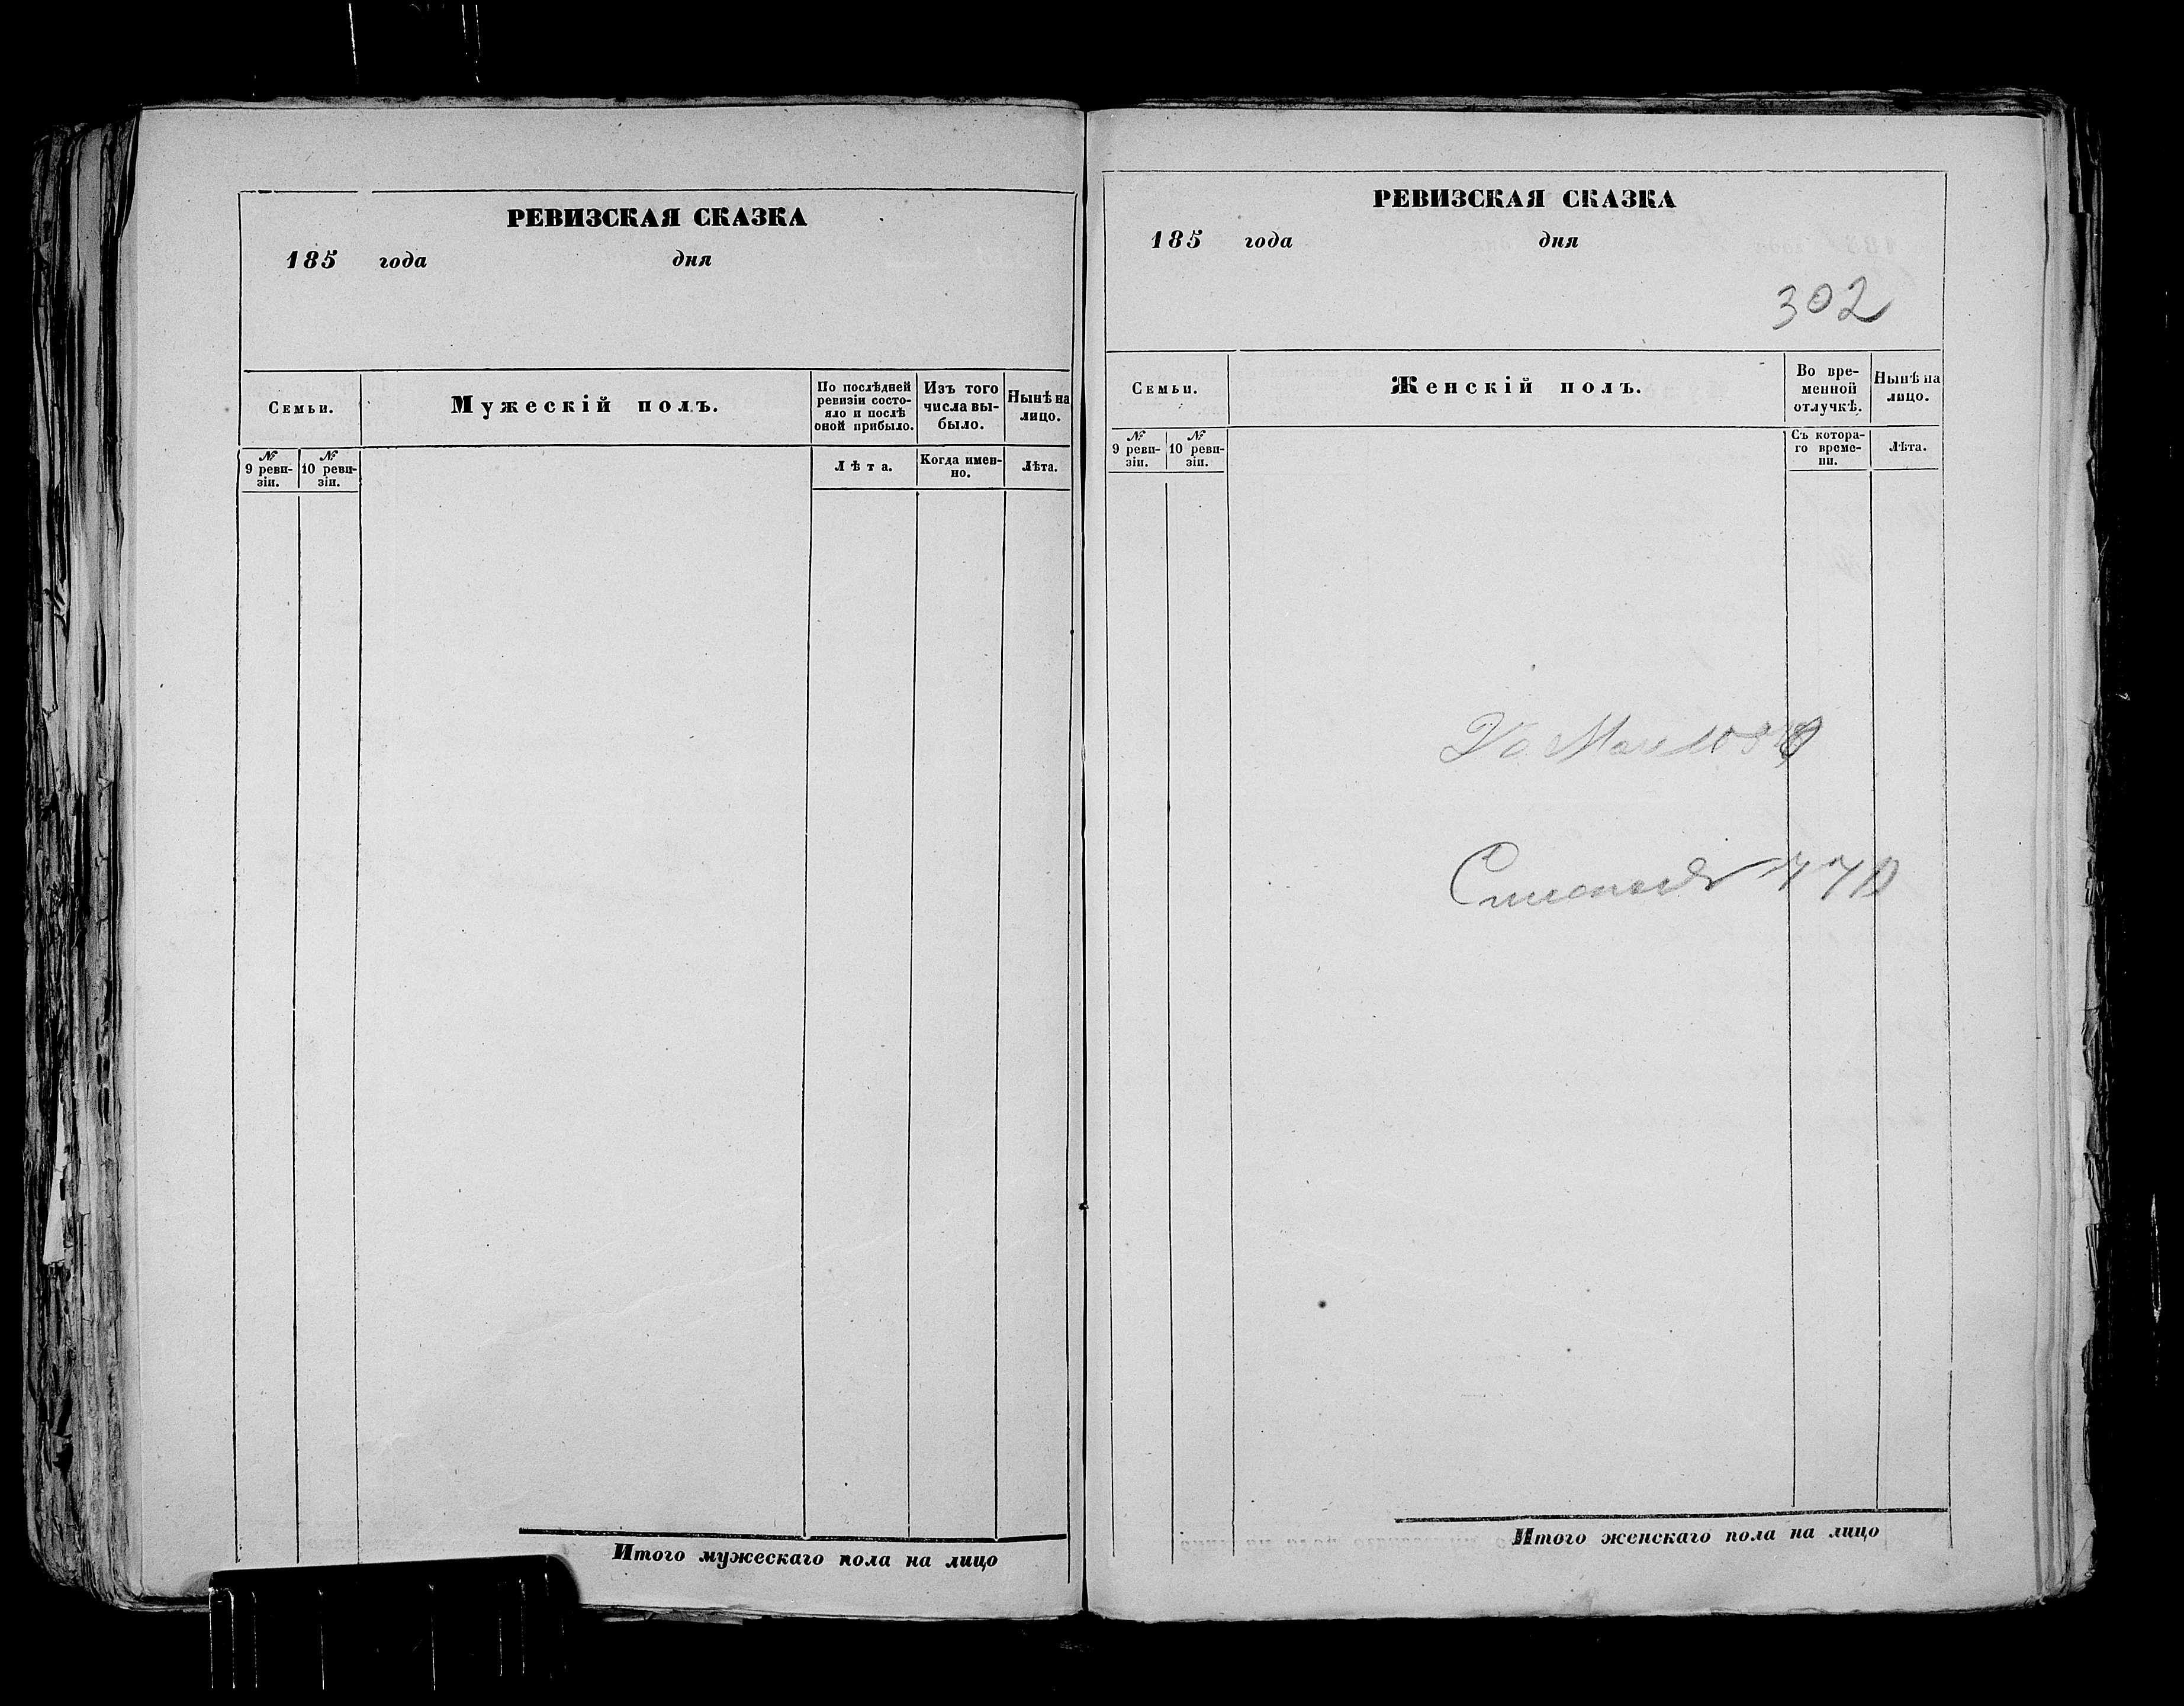 РЕВИЗСКАЯ СКАЗКА
185 года дня
Семьи.
Мужескій полъ.
По послѣдней
ревизіи состо-
яло и послѣ
оной прибыло.
Изъ того
числа вы-
было.
Нынѣ на
лицо.
№
9 реви-
зіи.
№
10 реви-
зіи.
Лѣта.
Когда имен-
но.
Лѣта.
Итого мужескаго пола на лицо
РЕВИЗСКАЯ СКАЗКА
185 года дня
302
Семьи.
Женскій полъ.
Во вре-
менной
отлучкѣ.
Нынѣ на
лицо.
№
9 реви-
зіи.
№
10 реви-
зіи.
Съ котора-
го време-
ни.
Лѣта.
Итого женскаго пола на лицо